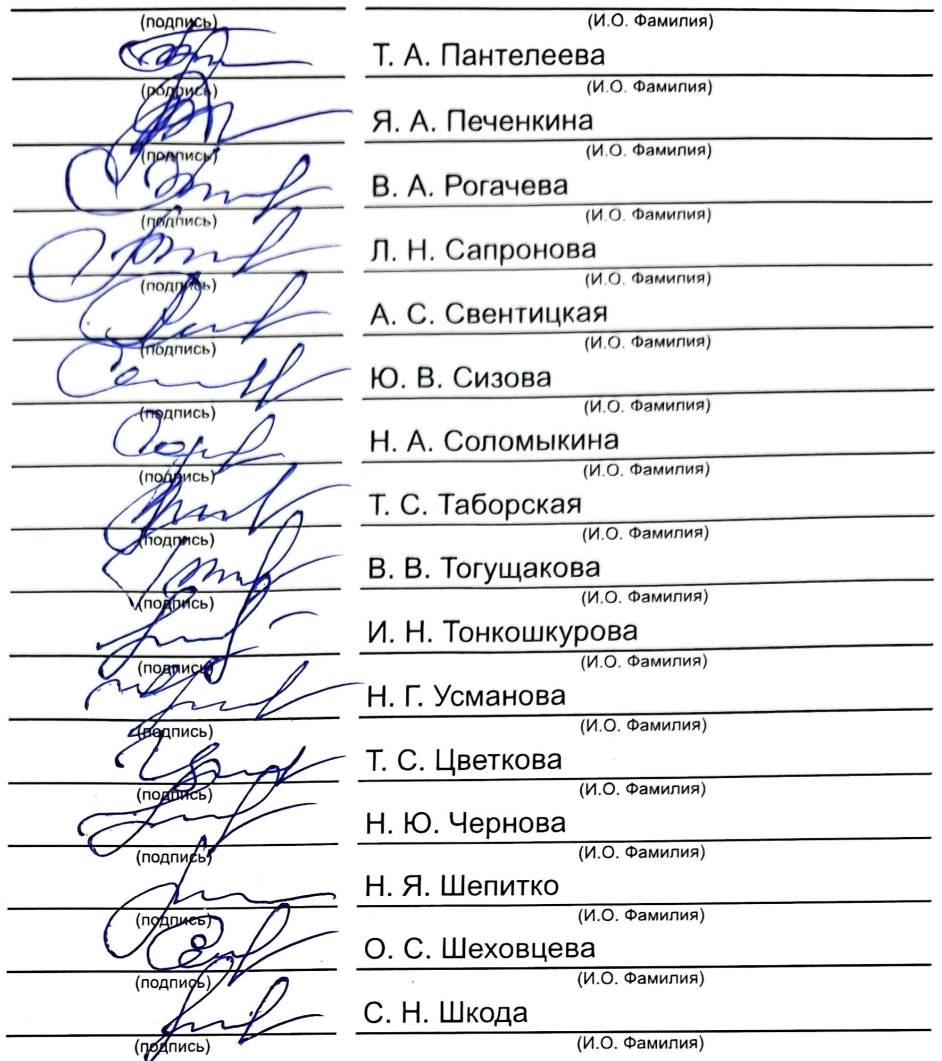 (подпись) (И.О. Фамилия)
Т. А. Пантелеева
(подпись) (И.О. Фамилия)
Я. А. Печенкина
(подпись) (И.О. Фамилия)
В. А. Рогачева
(подпись) (И.О. Фамилия)
Л. Н. Сапронова
(подпись) (И.О. Фамилия)
А. С. Свентицкая
(подпись) (И.О. Фамилия)
Ю. В. Сизова
(подпись) (И.О. Фамилия)
Н. А. Соломыкина
(подпись) (И.О. Фамилия)
Т. С. Таборская
(подпись) (И.О. Фамилия)
В. В. Тогущакова
(подпись) (И.О. Фамилия)
И. Н. Тонкошкурова
(подпись) (И.О. Фамилия)
Н. Г. Усманова
(подпись) (И.О. Фамилия)
Т. С. Цветкова
(подпись) (И.О. Фамилия)
Н. Ю. Чернова
(подпись) (И.О. Фамилия)
Н. Я. Шепитко
(подпись) (И.О. Фамилия)
О. С. Шеховцева
(подпись) (И.О. Фамилия)
С. Н. Шкода
(подпись) (И.О. Фамилия)